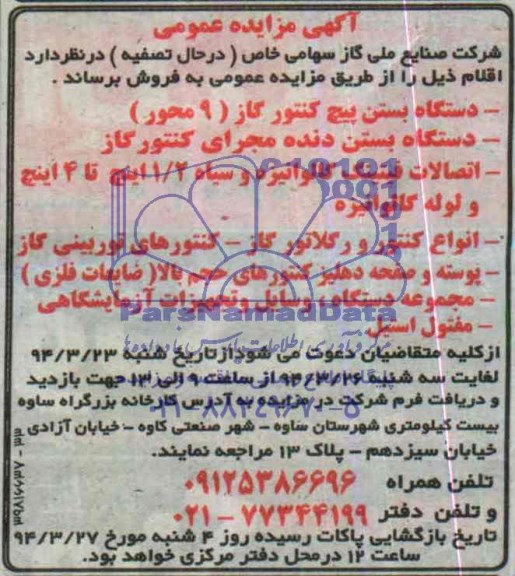 آگهی مزایده عمومی
شرکت صنایع ملی گاز سهامی خاص ( درحال تصفیه ) درنظردارد
اقلام ذیل را از طریق مزایده عمومی به فروش برساند .
- دستگاه بستن پیچ کنتور گاز ( ۹ محور )
- دستگاه بستن دنده مجرای کنتورگاز
- اتصالات فیتینگ گالوانیزه و سیاه ۱/۲ اینچ تا ۴ اینچ
و لوله گالوانیزه
- انواع کنتور و رگلاتور گاز - کنتورهای توربینی گاز
- پوسته و صفحه دهلیز کنتورهای حجم بالا( ضایعات فلزی )
- مجموعه دستگاه ، وسایل وتجهیزات آزمایشگاهی
ParsNamadData
- مفتول استیل
ازکلیه متقاضیان دعوت می شودازتاریخ شنبه ۹۴/۳/۲۳
لغایت سه شنبه ۹۴/۳/۲۶ از ساعت ۹ الی ۱۳ جهت بازدید
و دریافت فرم شرکت در مزایده به آدرس کارخانه بزرگراه ساوه
۰۲۱-۸۸۳۴۹۶۷۰-۵
بیست کیلومتری شهرستان ساوه - شهر صنعتی کاوه - خیابان آزادی
خیابان سیزدهم - پلاک ۱۳ مراجعه نمایند.
تلفن همراه ۰۹۱۲۵۳۸۶۶۹۶
و تلفن دفتر ۷۷۳۴۴۱۹۹ - ۰۲۱
تاریخ بازگشایی پاکات رسیده روز ۴ شنبه مورخ ۹۴/۳/۲۷
ساعت ۱۲ درمحل دفتر مرکزی خواهد بود.